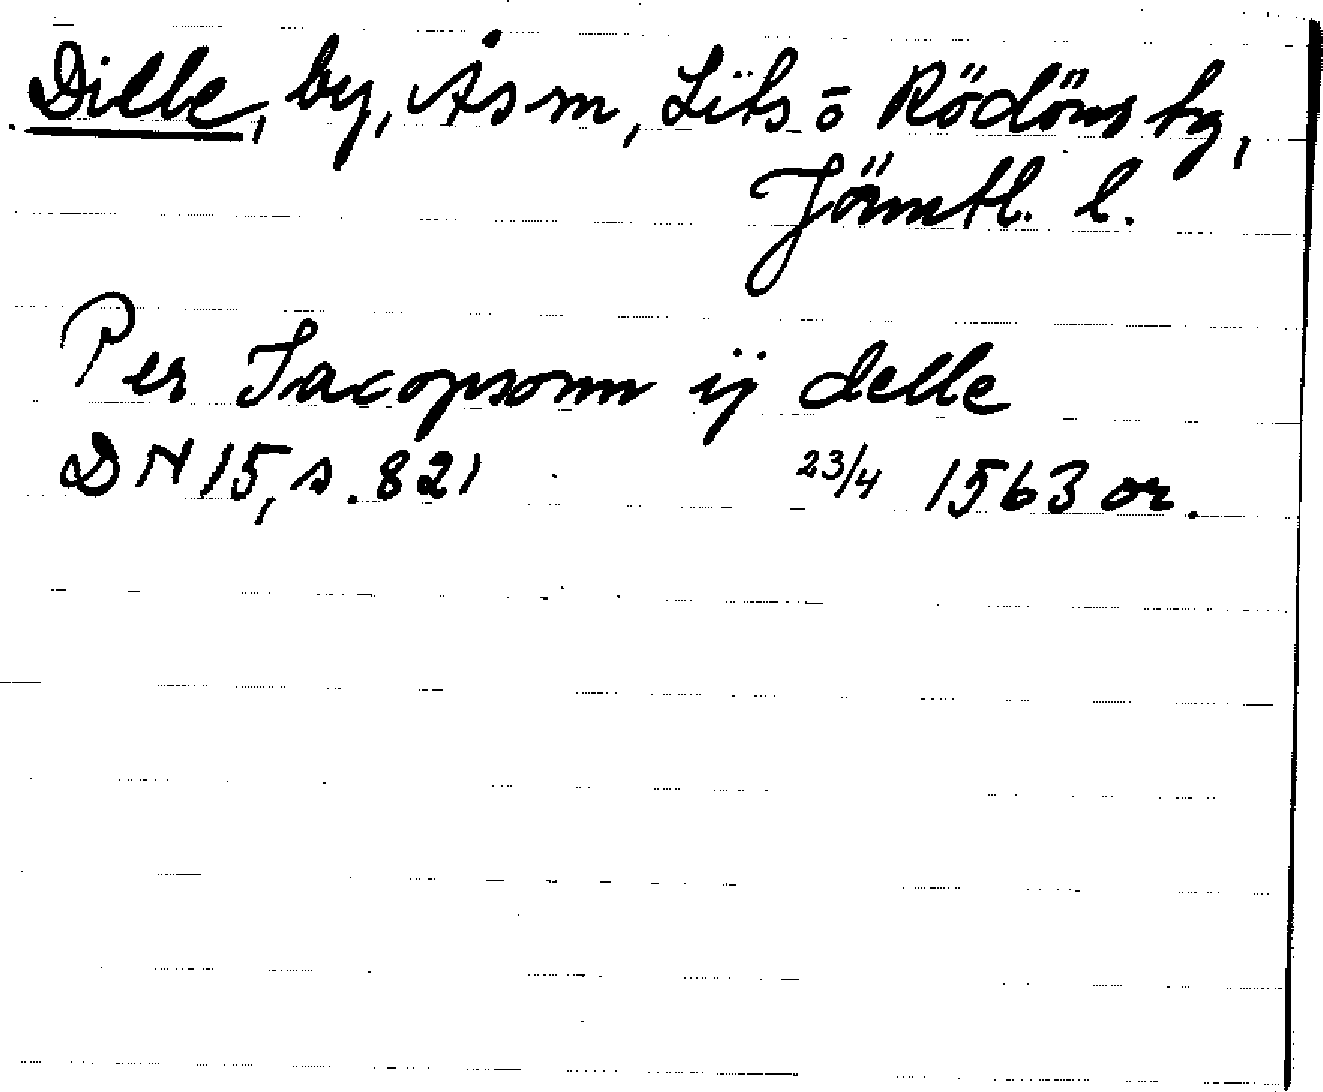 Dille, by, Ås sn, Lits o Rödöns tg,
Jämtl. l.
Per Jacopsonn ij delle
DN 15, s. 821 23/4 1563 or.